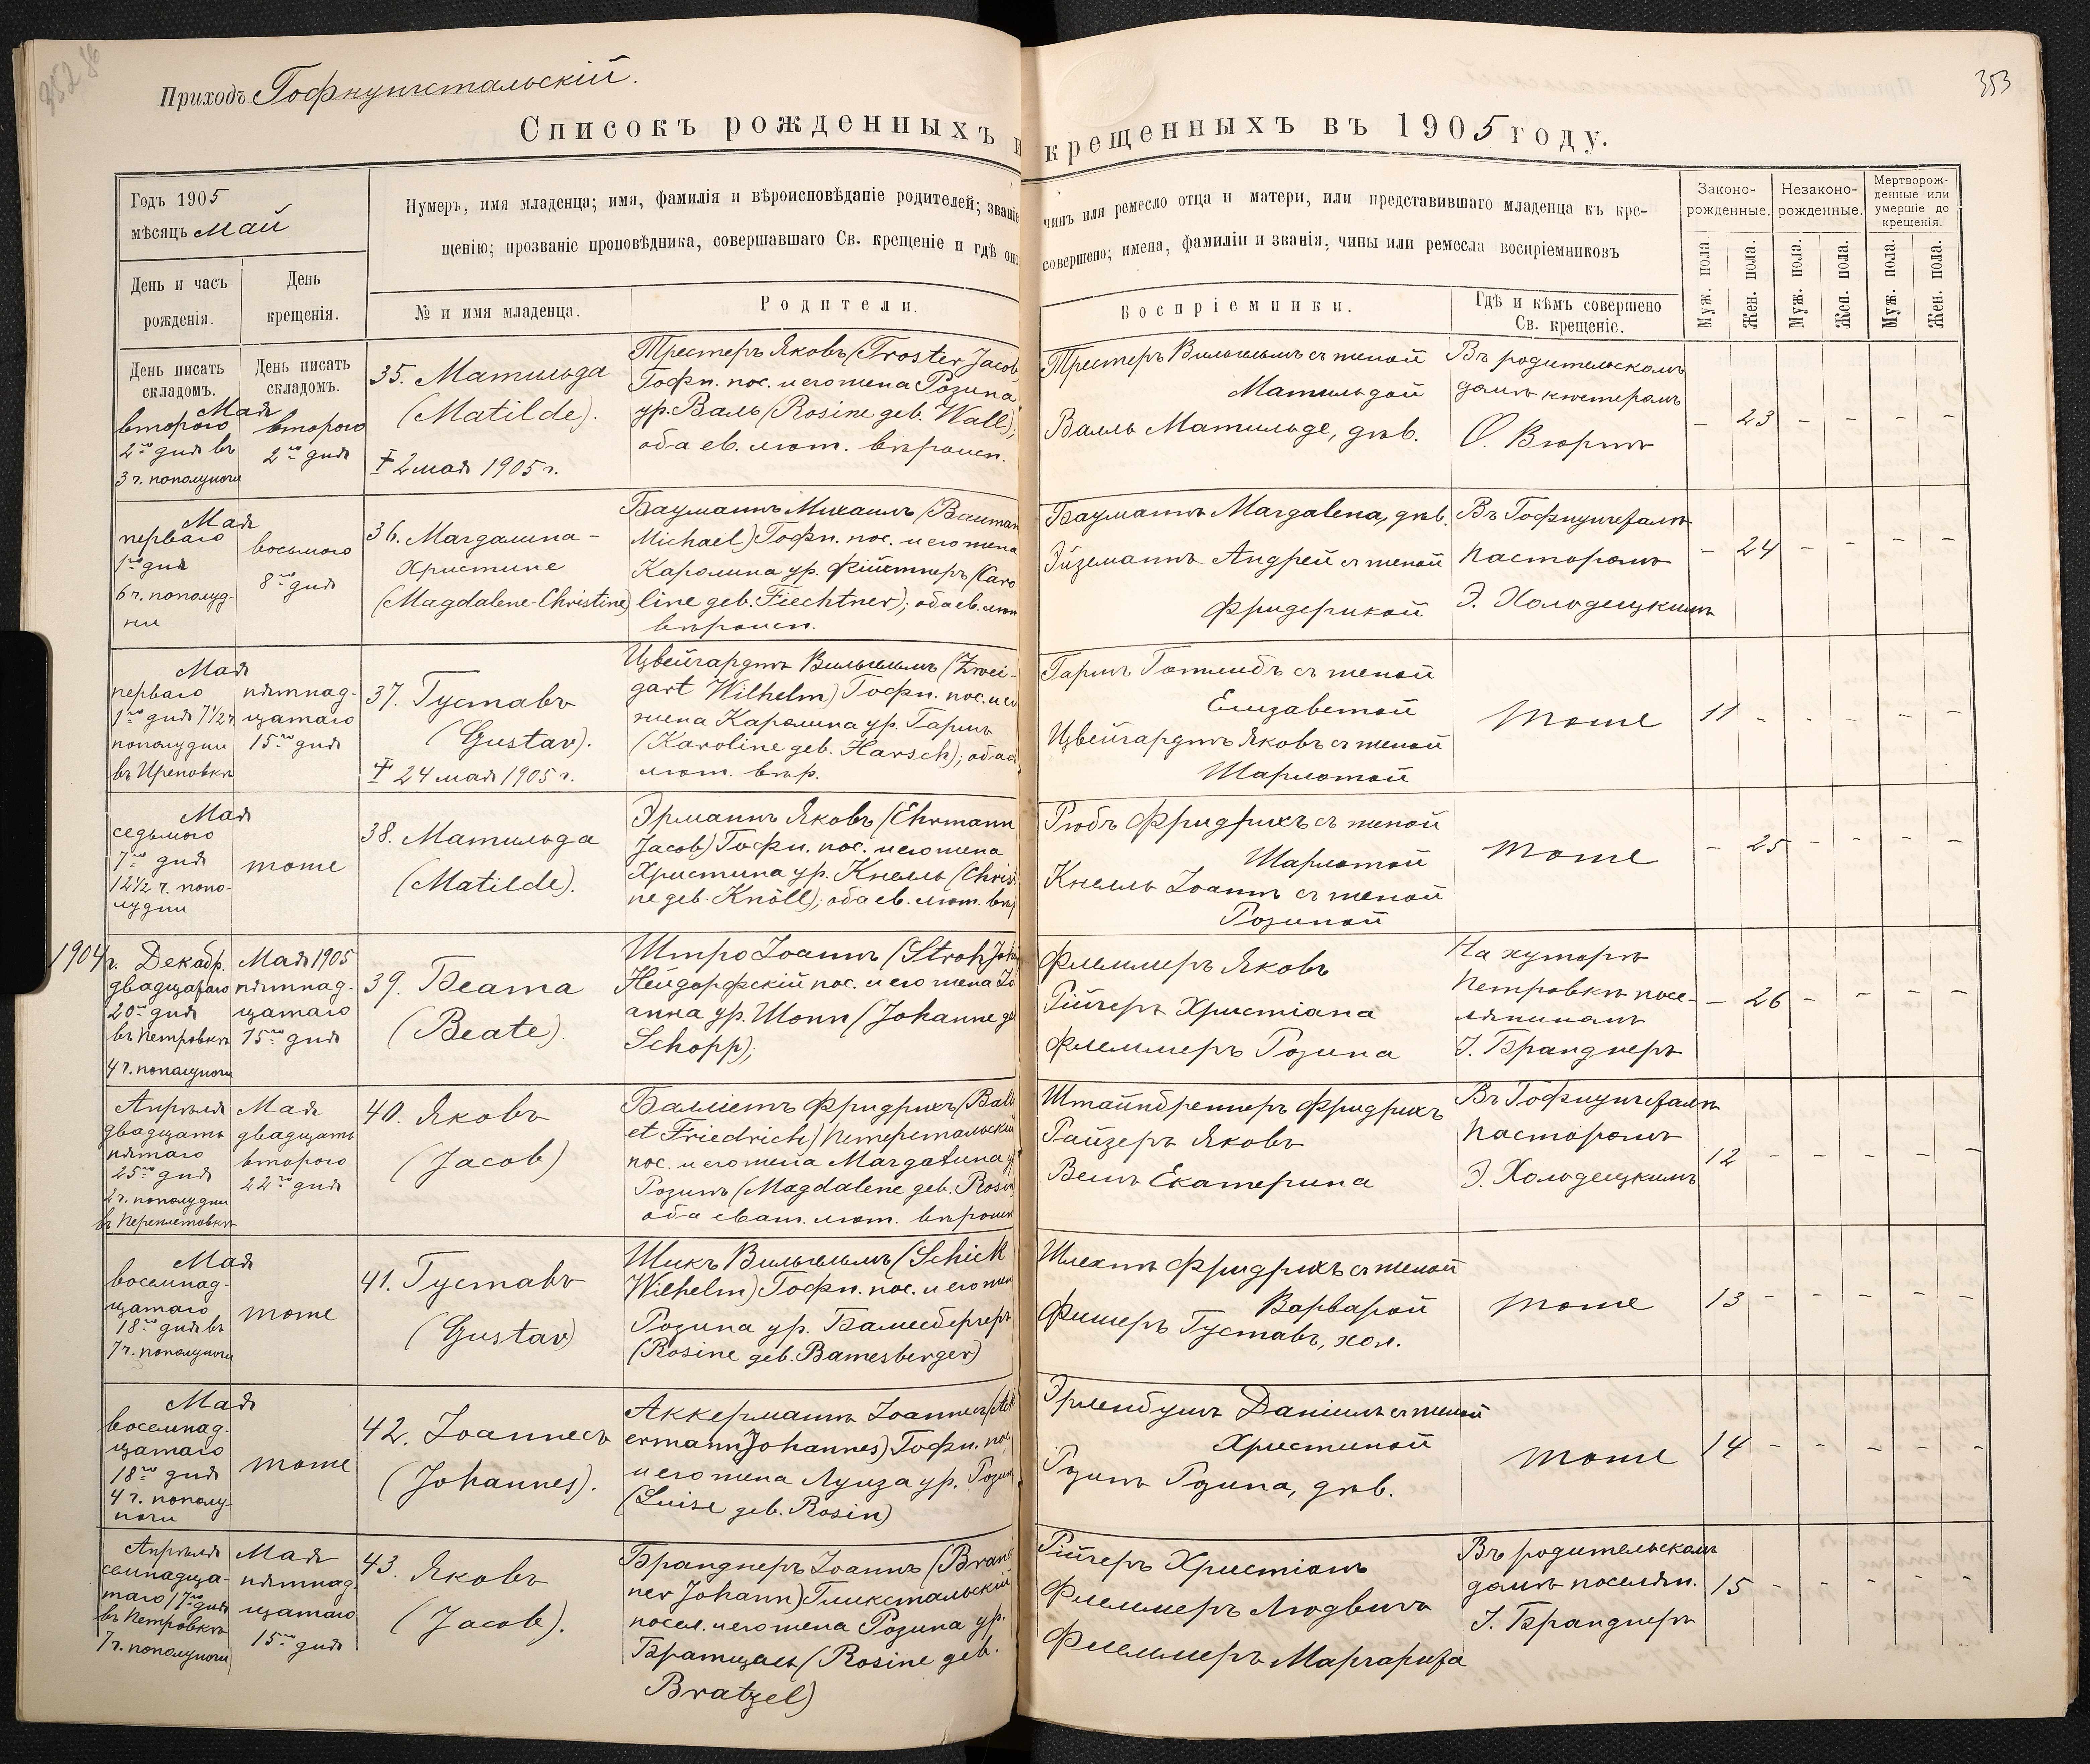 352
Приходъ Гофнунгстальскій.
353
Списокъ рожденныхъ и крещенныхъ въ 1905 году.
Годъ 1905
мѣсяцъ май
Нумеръ, имя младенца; имя, фамилія и вѣроисповѣданіе родителей; званіе
чинъ или ремесло отца и матери, или представившаго младенца къ кре-
щенію; прозваніе проповѣдника, совершавшаго Св. крещеніе и гдѣ оно
совершено; имена, фамиліи и званія, чины или ремесла воспріемниковъ
Законо-
рожденные.
Незаконо-
рожденные.
Мертворож-
денные или
умершіе до
крещенія.
День и часъ
рожденія.
День
крещенія.
№ и имя младенца.
Родители.
Воспріемники.
Гдѣ и кѣмъ совершено
Св. крещеніе.
Муж. пола.
Жен. пола.
Муж. пола.
Жен. пола.
Муж. пола.
Жен. пола.
День писать
складомъ.
День писать
складомъ.
Мая
второго
2го дня въ
3 ч. пополуночи
второго
2го дня
35. Матильда
(Matilde).
† 2 мая 1905 г.
Трестеръ Яковъ (Troster Jacob
Гофн. пос. и его жена Розина
ур. Валь (Rosine geb. Wall);
оба ев. лют. вѣроисп.
Трестеръ Вильгельмъ съ женой
Матильдой
Валль Матильде, дѣв.
Въ родительскомъ
домѣ кистеромъ
О. Вюртъ
- 23 - - - -
Мая
перваго
1го дня
6 ч. пополуд-
ни
восьмого
8го дня
36. Магдалина-
Христине
(Magdalene-Christine)
Бауманнъ Михаилъ (Bauman
Michael) Гофн. пос. и его жена
Каролина ур. Фійхтнеръ (Caro
line geb. Fiechtner); оба ев. лют
вѣроисп.
Бауманнъ Магдалена, дѣв.
Эйземаннъ Андрей съ женой
Фридерикой
Въ Гофнунгсталѣ
пасторомъ
Э. Холодецкимъ
- 24 - - - -
Мая
перваго
1го дня 7 1/2 ч.
пополудни
пятнад-
цатаго
15го дня
37. Густавъ
(Gustav).
† 24 мая 1905 г.
Цвейгардтъ Вильгельмъ (Zwei-
gart Wilhelm) Гофн. пос. и его
жена Каролина ур. Гаршъ
(Karoline geb. Harsch); оба
лют. вѣр.
Гаршъ Готлибъ съ женой
Елизаветой
Цвейгардтъ Яковъ съ женой
Шарлотой
тоже
11 - - - - -
Мая
седьмого
7го дня
12 1/2 ч. попо-
лудни
тоже
38. Матильда
(Matilde).
Эрманнъ Яковъ (Ehrmann
Jacob) Гофн. пос. и его жена
Христина ур. Кнелль (Christ
ne geb. Knöll); оба ев. лют. вѣр
Рюбъ Фридрихъ съ женой
Шарлотой
Кнелль Іоаннъ съ женой
Розиной
тоже
- 25 - - - -
1904 г. Декабр.
двадцатаго
20го дня
въ Петровкѣ
4 ч. пополуночи
Мая 1905
пятнад-
цатаго
15го дня
39. Беата
(Beate).
Штро Іоаннъ (Stroh Joha
Нейдорфскій пос. и его жена Іо
анна ур. Шопп (Johanne ge
Schopp);
Флеммеръ Яковъ
Рійгеръ Христіана
Флеммеръ Розина
На хуторѣ
Петровкѣ посе-
ляниномъ
І. Бранднеръ
- 26 - - - -
Апрѣля
двадцать
пятаго
25го дня
2 ч. пополудни
въ Переплетовкѣ
Мая
двадцать
второго
22го дня
40. Яковъ
(Jacob)
Балліетъ Фридрихъ (Balli
et Friedrich) Петерстальскій
пос. и его жена Магдалина у
Розинъ (Magdalene geb. Rosin
оба еванг. лют. вѣроисп
Штайнбреннеръ Фридрихъ
Гайзеръ Яковъ
Вейсъ Екатерина
Въ Гофнунгсталѣ
пасторомъ
Э. Холодецкимъ
12 - - - - -
Мая
восемнад-
цатаго
18го дня въ
7 ч. пополуночи
тоже
41. Густавъ
(Gustav)
Шикъ Вильгельмъ (Schick
Wilhelm) Гофн. пос. и его жен
Розина ур. Бамесбергеръ
(Rosine geb. Bamesberger)
Шлехтъ Фридрихъ съ женой
Варварой
Фишеръ Густавъ, хол.
тоже
13 - - - - -
Мая
восемнад-
цатаго
18го дня
4 ч. пополу-
ночи
тоже
42. Іоаннесъ
(Johannes).
Аккерманнъ Іоаннесъ (Ack
ermann Johannes) Гофн. пос
и его жена Луиза ур. Розин
(Luise geb. Rosin)
Эрленбушъ Даніилъ съ женой
Христиной
Розинъ Розина, дѣв.
тоже
14 - - - - -
Апрѣля
семнадца-
таго 17го дня
въ Петровкѣ
7 ч. пополуночи
Мая
пятнад-
цатаго
15го дня
43. Яковъ
(Jacob).
Бранднеръ Іоаннъ (Brand
ner Johann) Гликстальскій
посел. и его жена Розина ур.
Братцель (Rosine geb.
Bratzel)
Рійгеръ Христіанъ
Флеммеръ Людвигъ
Флеммеръ Маргарита
Въ родительскомъ
домѣ поселян.
І. Бранднеръ
15 - - - - -